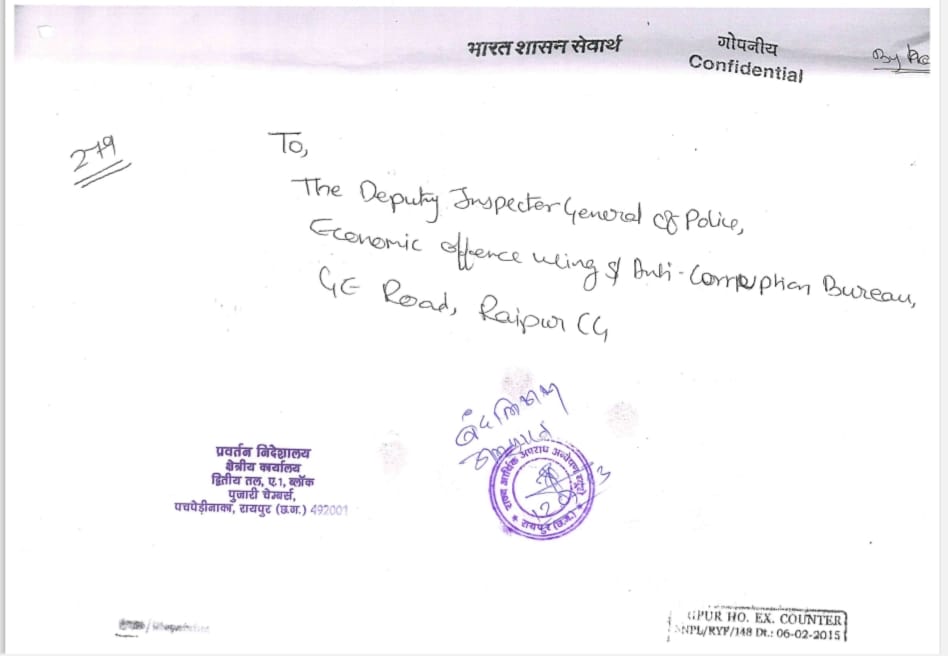 भारत शासन सेवार्थ
गोपनीय
Confidential
By
279
To,
The Deputy Inspector General of Police,
Economic offence wing & Anti-Corruption Bureau,
GE Road, Raipur CG
बंद लिफाफा
राज्य आर्थिक अपराध अन्वेषण ब्यूरो
रायपुर (छ.ग.)
प्रवर्तन निदेशालय
क्षेत्रीय कार्यालय
द्वितीय तल, ए.1, ब्लॉक
पुजारी चेम्बर्स,
पचपेड़ीनाका, रायपुर (छ.ग.) 492001
GPUR HO. EX. COUNTER
SNPL/RYF/148 Dt.: 06-02-2015